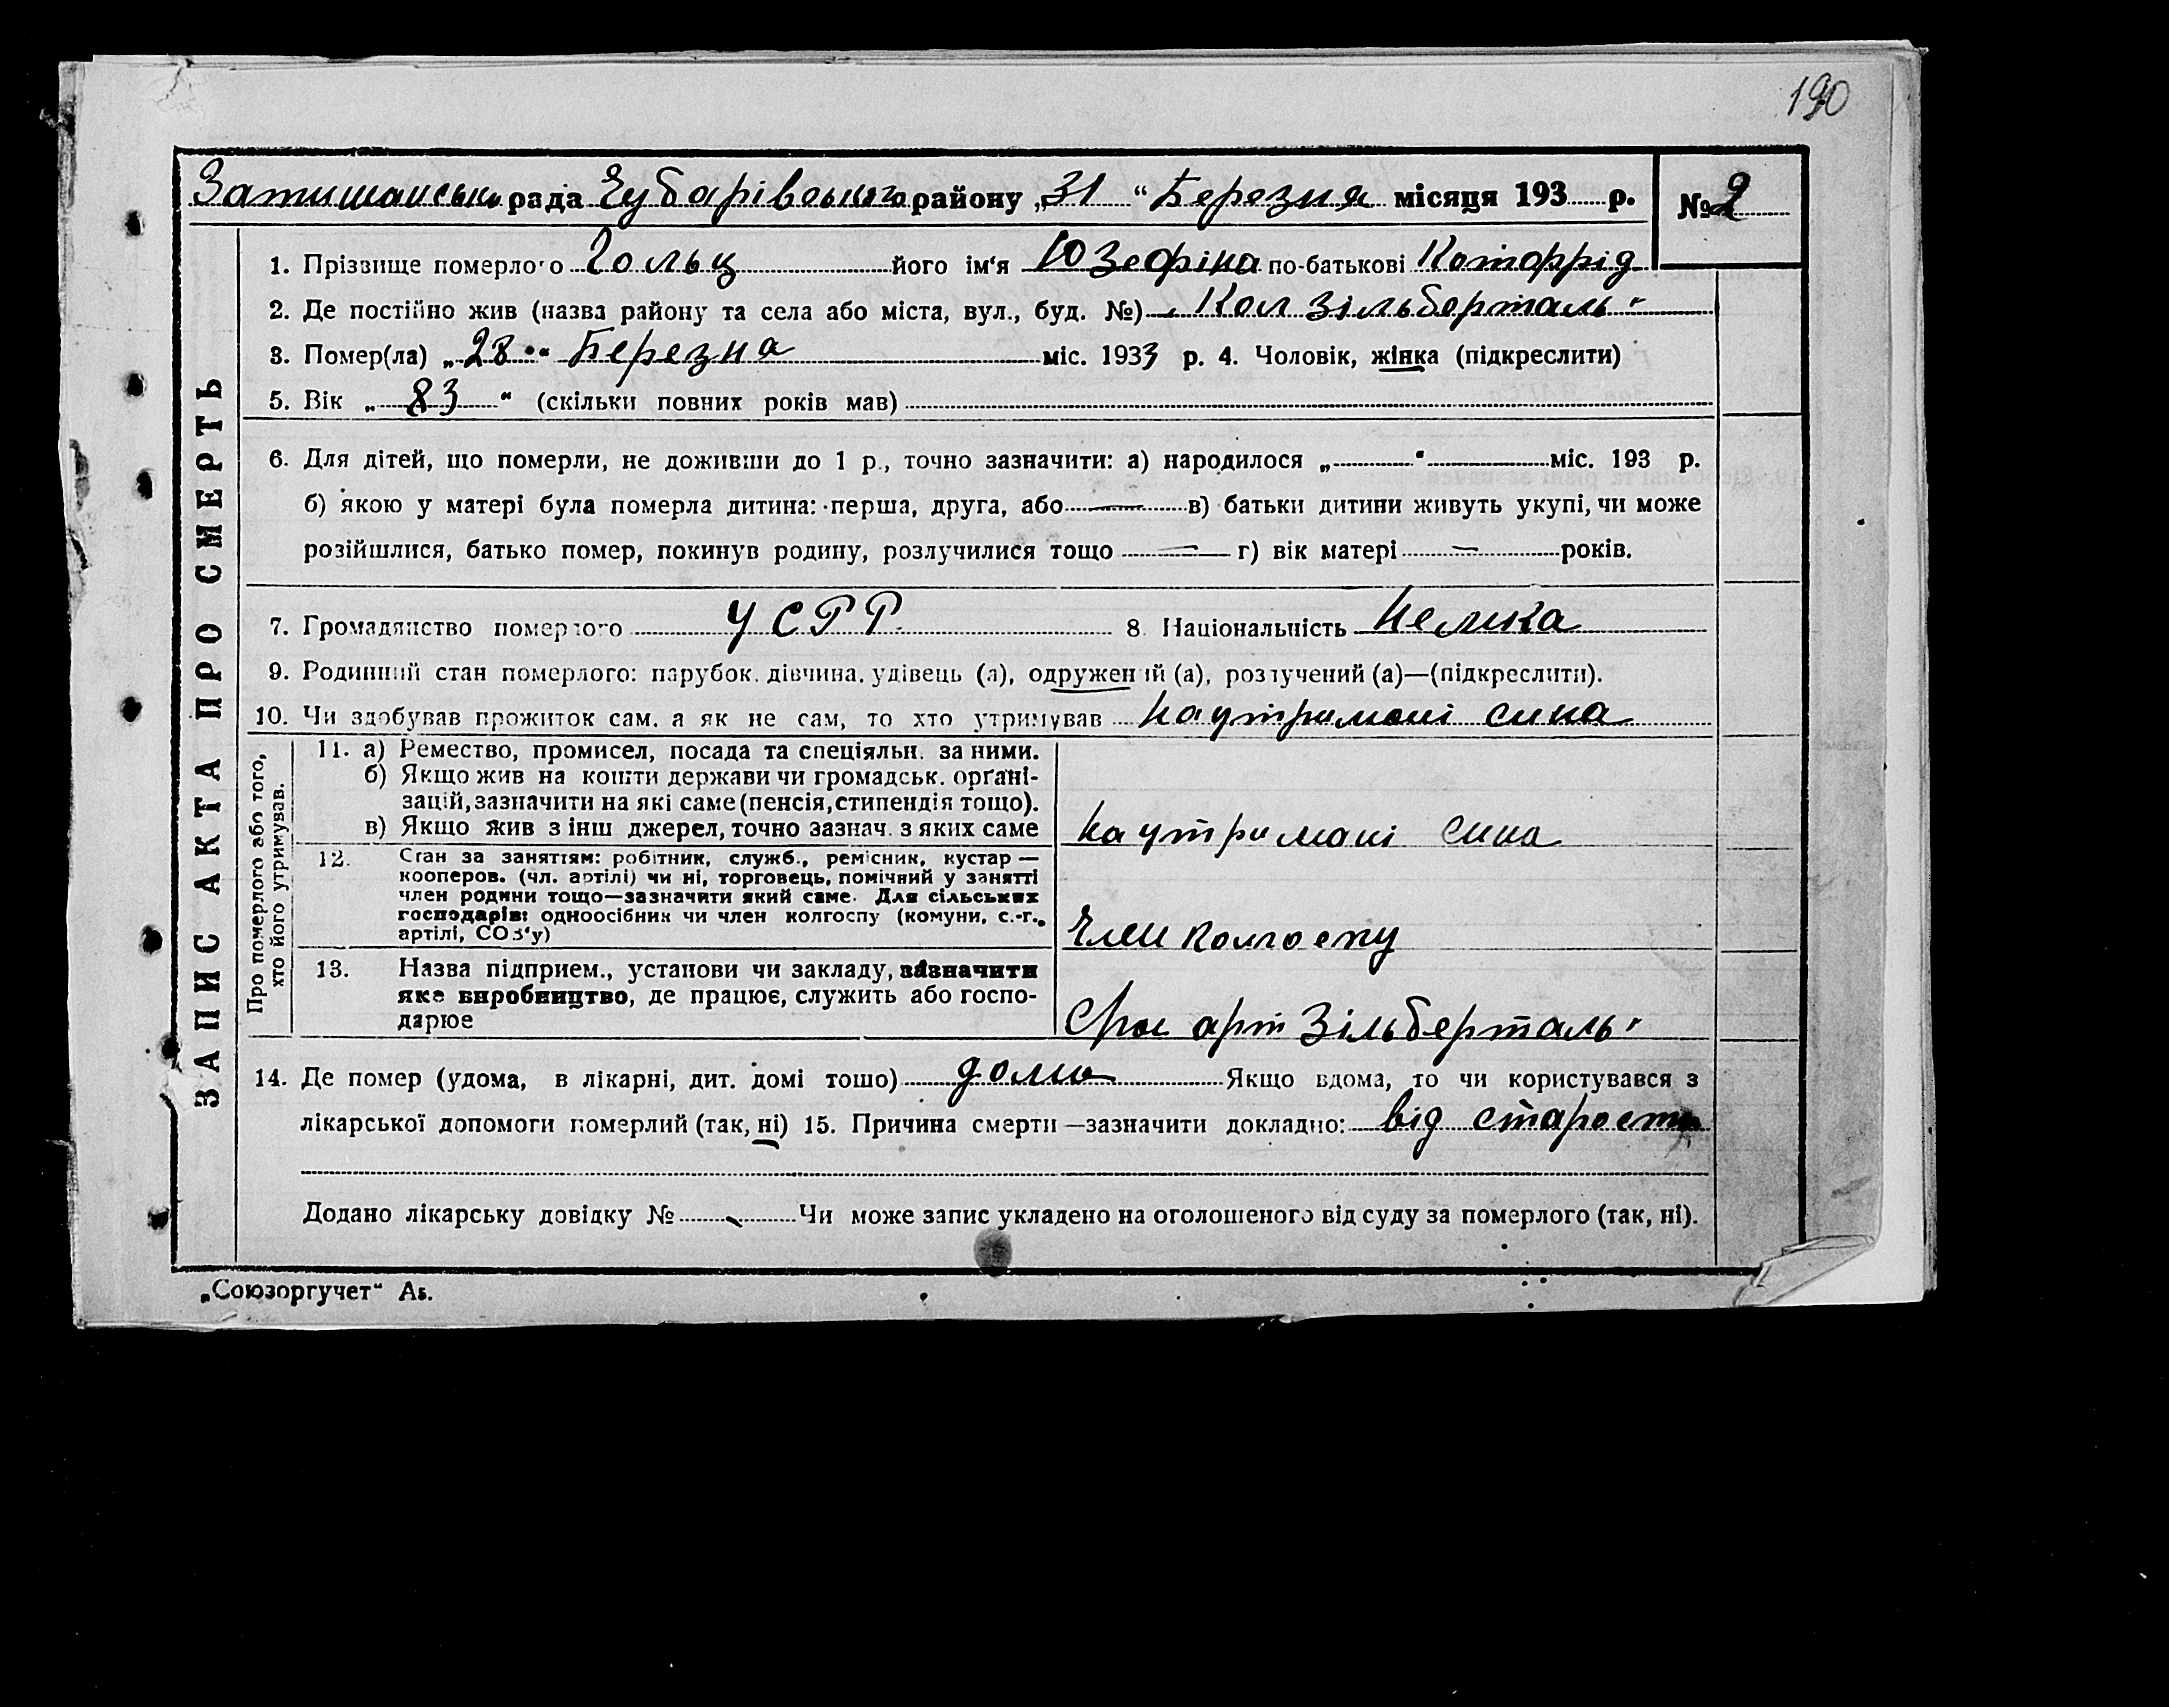 190
Затишанська рада Чубарівського району „31“ Березня місяця 193 р. № 2
ЗАПИС АКТА ПРО СМЕРТЬ
1. Прізвище померлого Гольц його ім'я Юзефіна по-батькові
2. Де постійно жив (назва району та села або міста, вул., буд. №) Кол Зільберталь
3. Помер(ла) „28“ Березна міс. 1933 р. 4. Чоловік, жінка (підкреслити)
5. Вік „83“ (скільки повних років мав)
6. Для дітей, що померли, не доживши до 1 р., точно зазначити: а) народилося „ “ міс. 193 р.
б) якою у матері була померла дитина: перша, друга, або — в) батьки дитини живуть укупі, чи може
розійшлися, батько помер, покинув родину, розлучилися тощо — г) вік матері — років.
7. Громадянство померлого УСРР. 8. Національність Немка
9. Родинний стан померлого: парубок, дівчина, удівець (а), одружений (а), розлучений (а)—(підкреслити).
10. Чи здобував прожиток сам, а як не сам, то хто утримував на утримані сина
Про померлого або того,
хто його утримував.
11. а) Ремество, промисел, посада та спеціяльн. за ними.
б) Якщо жив на кошти держави чи громадськ. орґані-
зацій, зазначити на які саме (пенсія, стипендія тощо).
в) Якщо жив з інш джерел, точно зазнач. з яких саме
на утримані сина
12. Стан за заняттям: робітник, служб., ремісник, кустар —
кооперов. (чл. артілі) чи ні, торговець, помічний у занятті
член родини тощо—зазначити який саме. Для сільських
господарів: одноосібник чи член колгоспу (комуни, с.-г.
артілі, СОЗ'у)
Член колгоспу
13. Назва підприєм., установи чи закладу, зазначити
яке виробництво, де працює, служить або госпо-
дарюе
арт Зільберталь
14. Де помер (удома, в лікарні, дит. домі тощо) дома Якщо вдома, то чи користувався з
лікарської допомоги померлий (так, ні) 15. Причина смерти —зазначити докладно: від старости
Додано лікарську довідку № Чи може запис укладено на оголошеного від суду за померлого (так, ні).
„Союзоргучет“ А5.